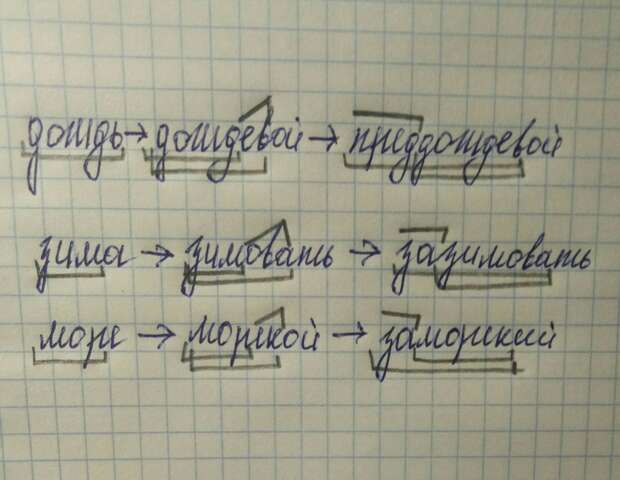 дождь → дождевой → преддождевой
зима → зимовать → зазимовать
море → морской → заморский